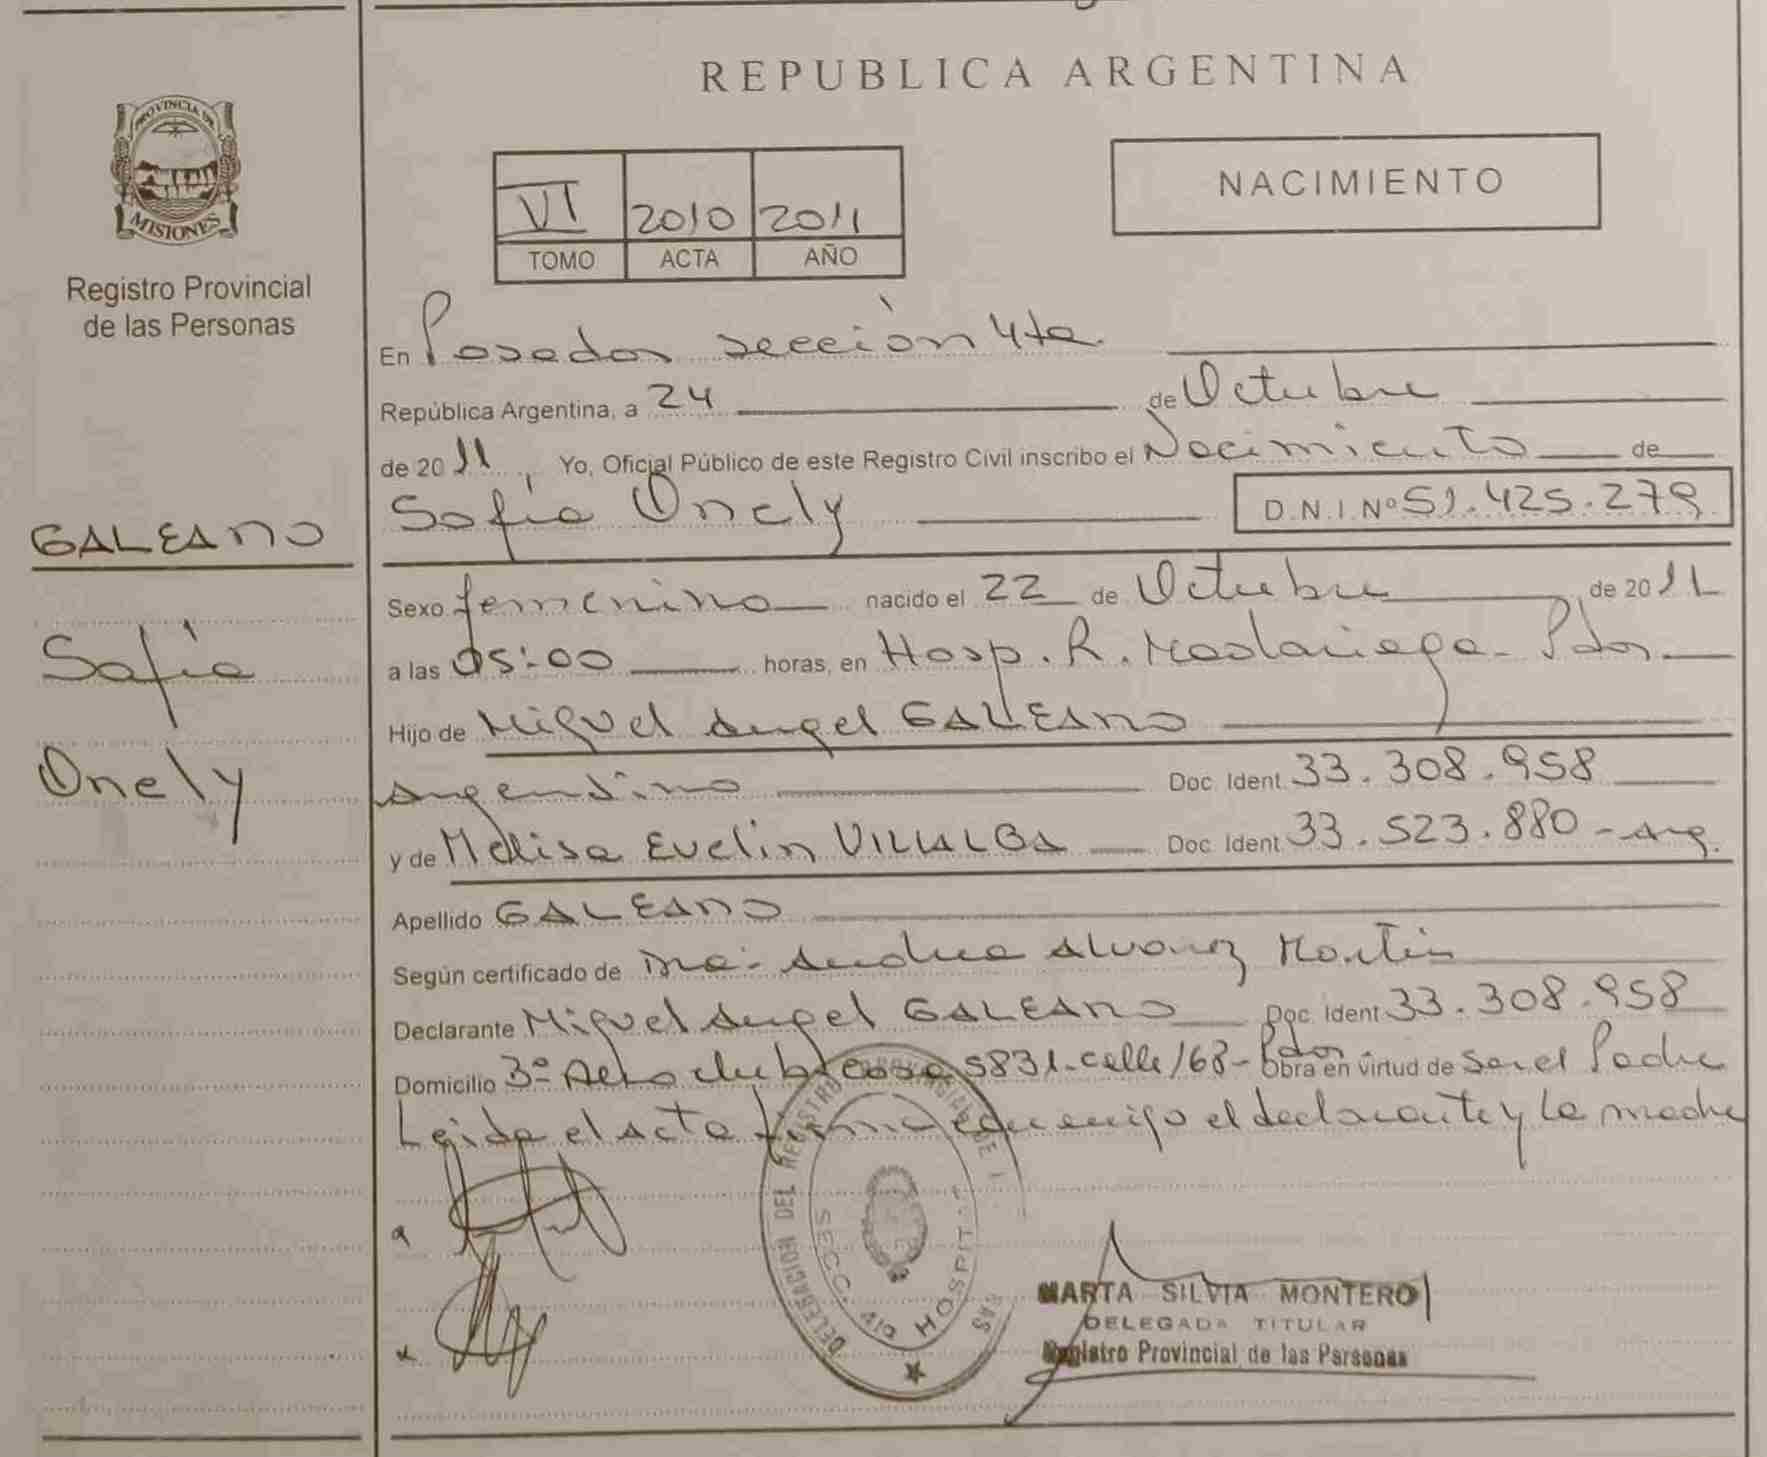 PROVINCIA DE
MISIONES
Registro Provincial
de las Personas
GALEANO
Sofía
Onely
REPUBLICA ARGENTINA
NACIMIENTO
VI 2010 2011
TOMO ACTA AÑO
En Posadas sección 4ta.
República Argentina, a 24 de Octubre
de 2011, Yo, Oficial Público de este Registro Civil inscribo el Nacimiento de
Sofía Onely D.N.I. Nº 51.425.279
Sexo femenino nacido el 22 de Octubre de 2011
a las 05:00 horas, en Hosp. R. Madariaga - Pdas.
Hijo de Miguel Angel GALEANO
Argentino Doc. Ident. 33.308.958
y de Melisa Evelin VILLALBA Doc. Ident. 33.523.880 - Arg.
Apellido GALEANO
Según certificado de Dra: Andrea Alvarez Martin
Declarante Miguel Angel GALEANO Doc. Ident. 33.308.958
Domicilio 3º Aeroclub casa 5831 - calle 168 - Pdas. Obra en virtud de ser el Padre
Leída el acta firma conmigo el declarante y la madre
DELEGACION DEL REGISTRO PROVINCIAL DE
SECC. 4ta HOSPITAL
MARTA SILVIA MONTERO
DELEGADA TITULAR
Registro Provincial de las Personas